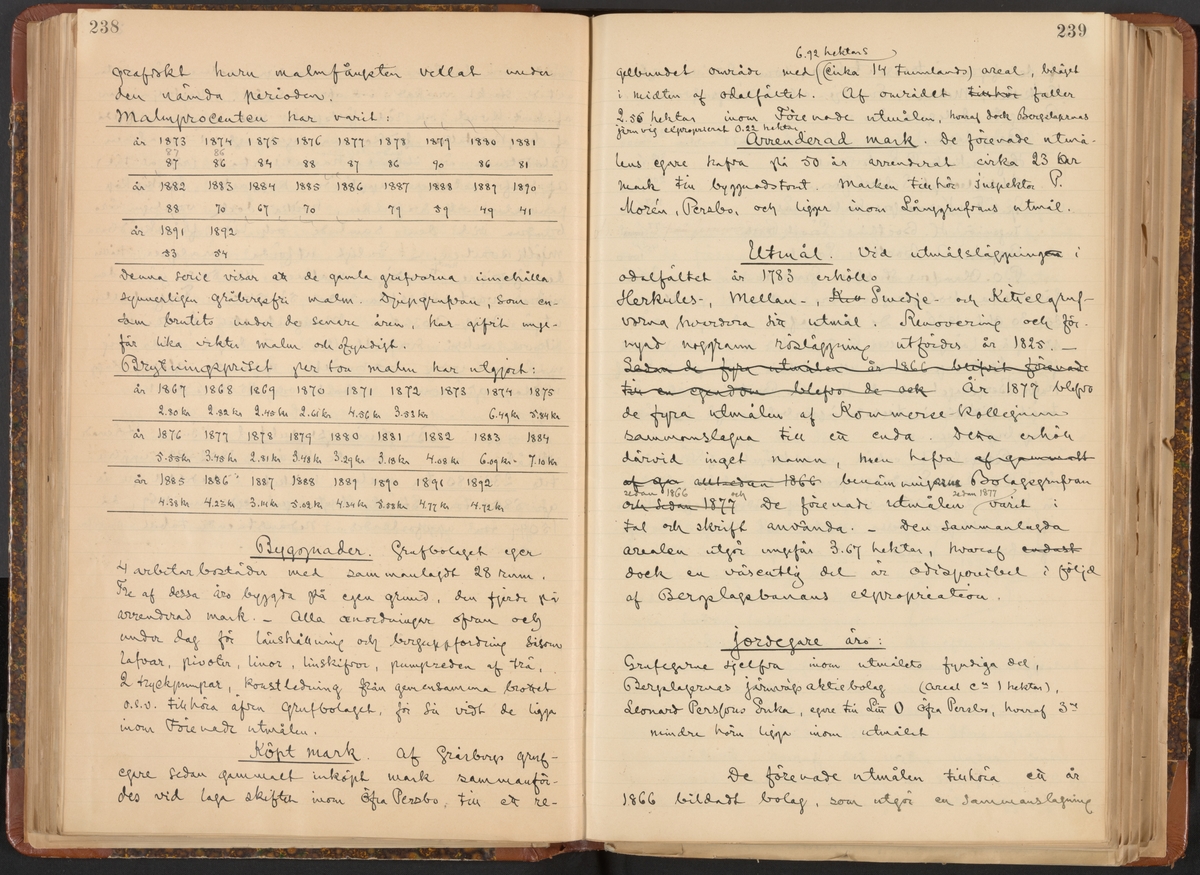 238
grafiskt huru malmfångsten vexlat under
den nämda perioden.
Malmprocenten har varit:
år 1873 1874 1875 1876 1877 1878 1879 1880 1881
87 86
87 86 84 88 87 86 90 86 81
år 1882 1883 1884 1885 1886 1887 1888 1889 1890
88 70 67 70 79 59 49 41
år 1891 1892
53 54
Denna serie visar att de gamla grufvorna innehålla
synnerligen gråbergsfri malm. Djupgrufvan, som en-
sam brutits under de senare åren, har gifvit unge-
fär lika vikter malm och ofyndigt.
Brytningspriset per ton malm har utgjort:
år 1867 1868 1869 1870 1871 1872 1873 1874 1875
2.80 kr 2.82 kr 2.45 kr 2.61 kr 4.56 kr 3.53 kr 6.49 kr 5.84 kr
år 1876 1877 1878 1879 1880 1881 1882 1883 1884
5.55 kr 3.45 kr 2.81 kr 3.48 kr 3.29 kr 3.18 kr 4.08 kr 6.09 kr 7.10 kr
år 1885 1886 1887 1888 1889 1890 1891 1892
4.38 kr 4.25 kr 3.14 kr 5.02 kr 4.54 kr 5.53 kr 4.77 kr 4.72 kr
Byggnader. Grufbolaget eger
4 arbetarbostäder med sammanlagdt 28 rum.
Tre af dessa äro byggda på egen grund, den fjerde på
arrenderad mark. – Alla anordningar ofvan och
under dag för länshållning och berguppfordring såsom
lafvar, pivoter, linor, linskifvor, pumpreden af trä,
2 tryckpumpar, konstledning från gemensamma brottet
o.s.v. tillhöra äfven Grufbolaget, för så vidt de ligga
inom Förenade utmålen.
Köpt mark. Af Gräsbergs gruf-
egare sedan gammalt inköpt mark sammanför-
des vid laga skiften inom Öfra Persbo, till ett re-
239
6.92 hektars
gelbundet område med (cirka 14 tunnlands) areal, beläget
i midten af odalfältet. Af området tillhör faller
2.56 hektar inom Förenade utmålen, hvaraf dock Bergslagernas
jernväg exproprierat 0.22 hektar
Arrenderad mark. De förenade utmå-
lens egare hafva på 50 år arrenderat cirka 23 ar
mark till byggnadstomt. Marken tillhör Inspektor P.
Morén, Persbo, och ligger inom Långgrufvans utmål.
Utmål. Vid utmålsläggningen i
odalfältet år 1783 erhöllo
Herkules-, Mellan-, Smedje- och Kittelgruf-
vorna hvardera sitt utmål. Renovering och för-
nyad noggrann rösläggning utfördes år 1825. –
Sedan de fyra utmålen år 1866 blifvit förenade
till en egendom blefvo de ock År 1877 blefvo
de fyra utmålen af Kommerse-Kollegium
sammanslagna till ett enda. Detta erhöll
därvid inget namn, men hafva af gammalt
alltsedan 1866 benämningarna Bolagsgrufvan
sedan 1866 och sedan 1877
och sedan 1877 De förenade utmålen varit i
tal och skrift använda. – Den sammanlagda
arealen utgör ungefär 3.67 hektar, hvaraf endast
dock en väsentlig del är odisponibel i följd
af Bergslagsbanans expropriation.
Jordegare äro:
Grufegarne sjelfva inom utmålets fyndiga del,
Bergslagernas järnvägsaktiebolag (areal ca 1 hektar),
Leonard Perssons Enka, egare till Litt O Öfra Persbo, hvaraf 3ne
mindre hörn ligga inom utmålet
De förenade utmålen tillhöra ett år
1866 bildadt bolag, som utgör en sammanslagning